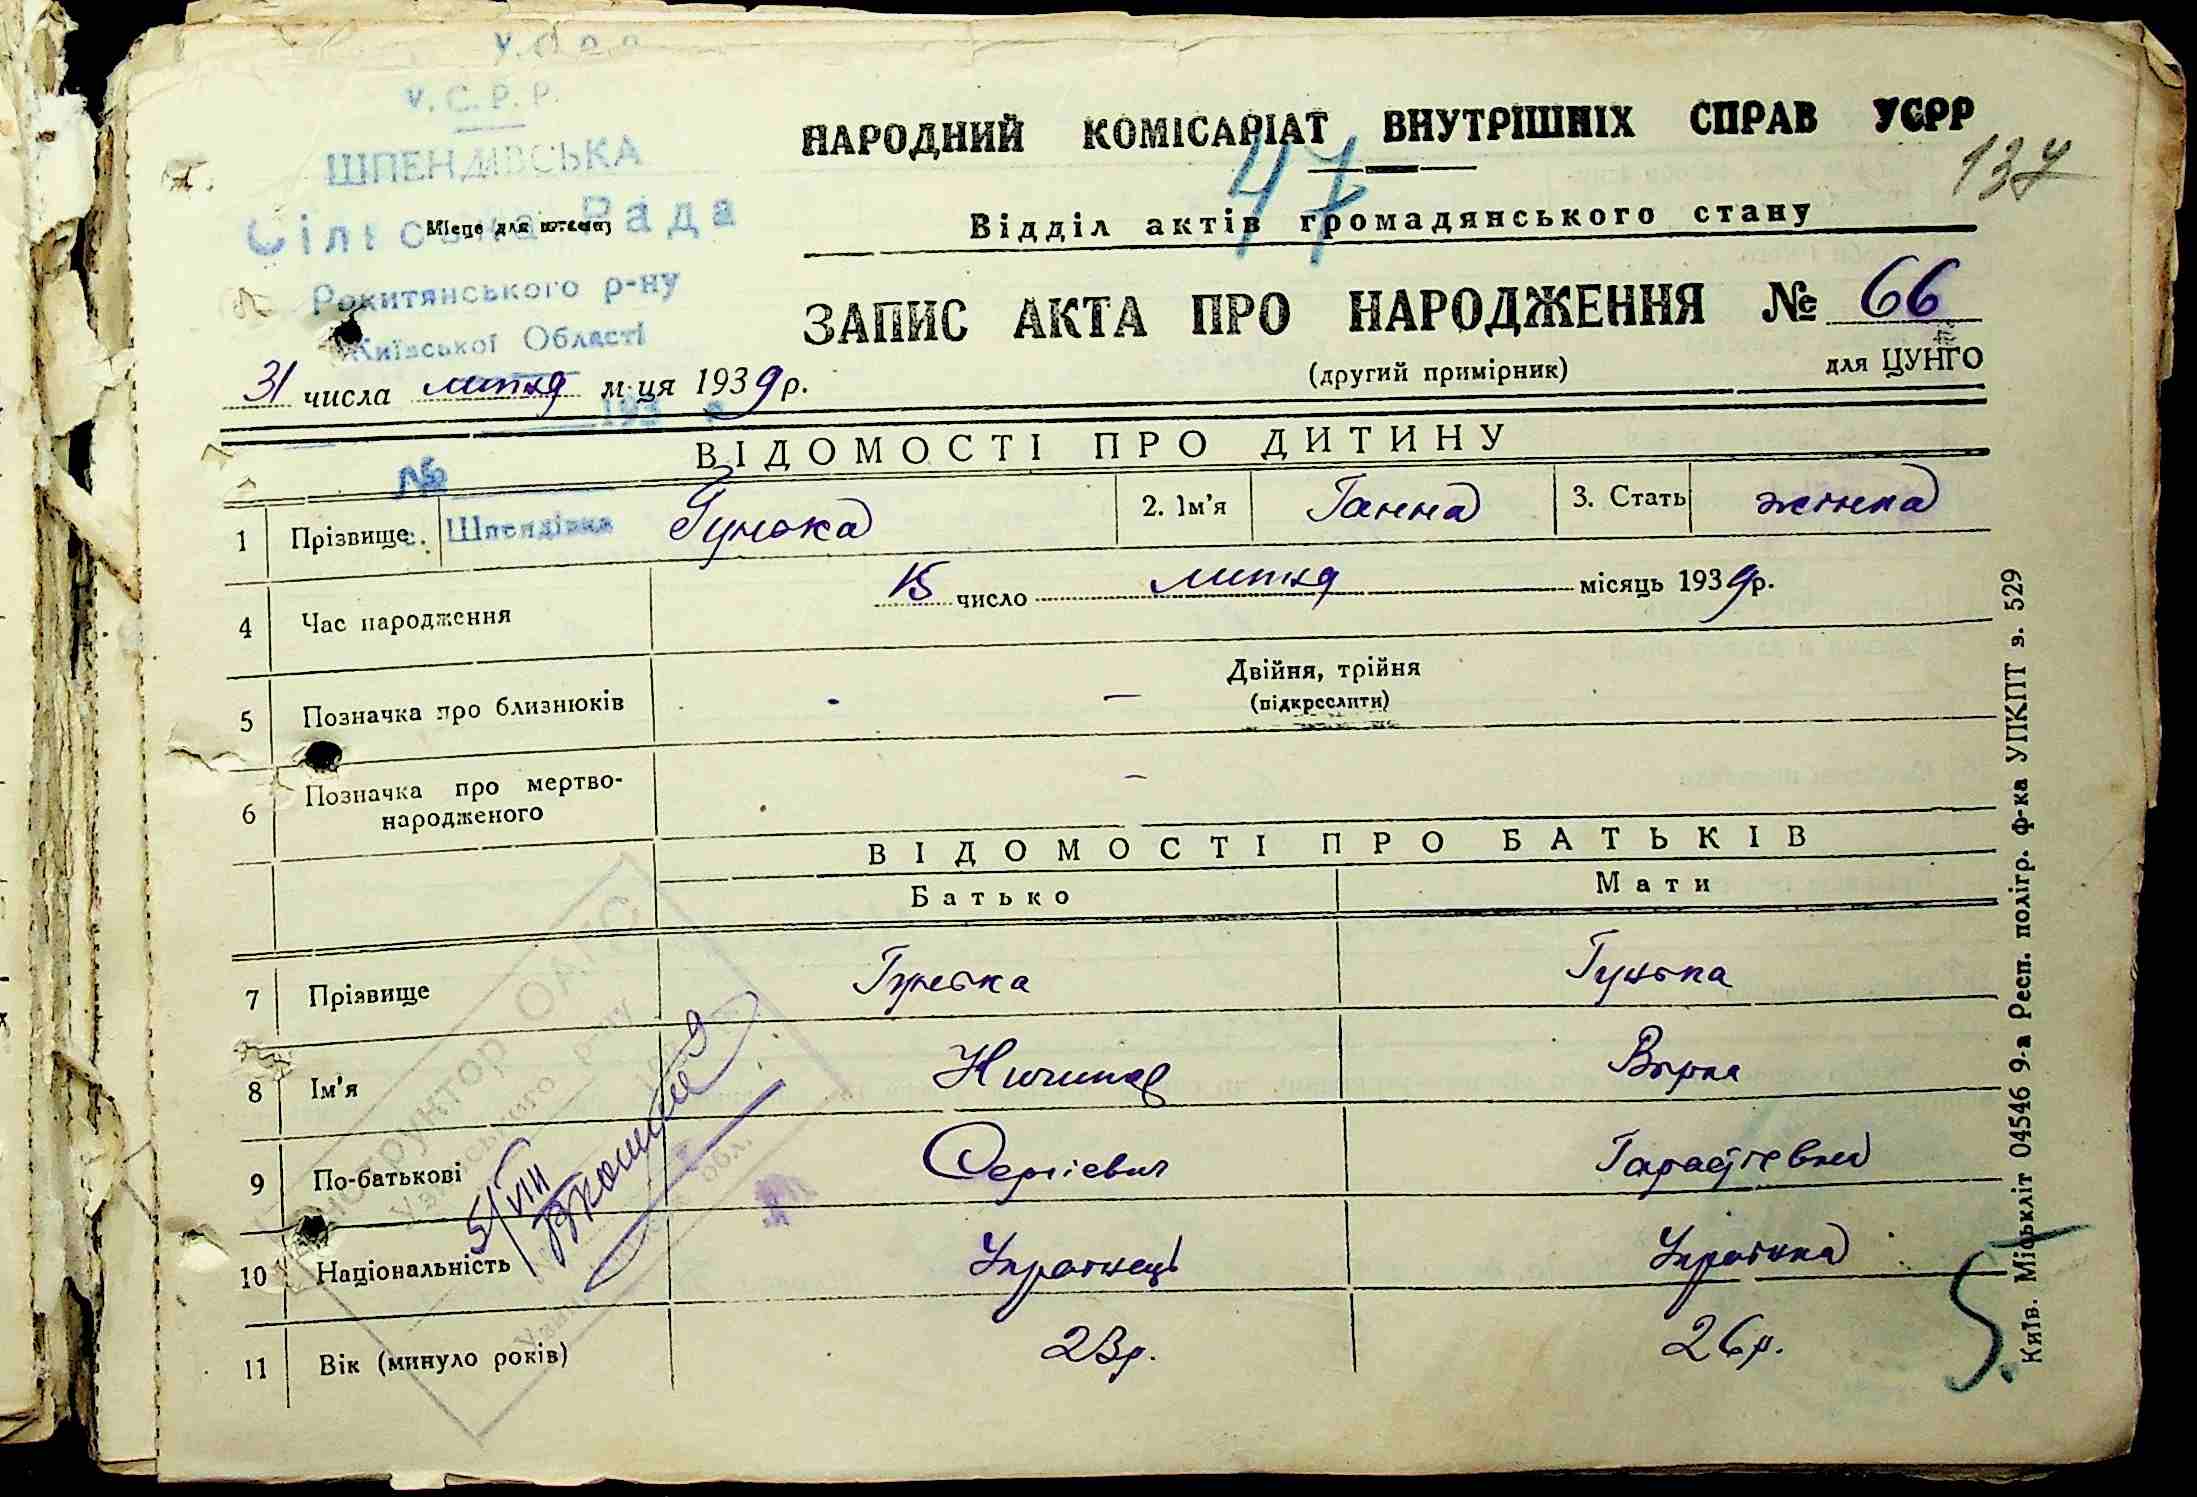 У.С.Р.Р.
ШПЕНДІВСЬКА
Сільська Рада
Місце для штемпу
Рокитянського р-ну
Київської Області
193
№
с. Шпендівка
НАРОДНИЙ КОМІСАРІАТ ВНУТРІШНІХ СПРАВ УСРР
47
137
Відділ актів громадянського стану
ЗАПИС АКТА ПРО НАРОДЖЕННЯ № 66
(другий примірник) для ЦУНГО
31 числа липня м-ця 1939 р.
ВІДОМОСТІ ПРО ДИТИНУ
1 Прізвище Гунька 2. Ім'я Ганна 3. Стать жінка
4 Час народження 15 число липня місяць 1939 р.
5 Позначка про близнюків - — Двійня, трійня
(підкреслити)
6 Позначка про мертво-
народженого —
ВІДОМОСТІ ПРО БАТЬКІВ
Батько Мати
7 Прізвище Гунька Гунька
8 Ім'я Ничипор Вірка
9 По-батькові Сергієвич
10 Національність Українець Українка
11 Вік (минуло років) 23р. 26р.
Інструктор ОАГС
Узинського р-ну
обл.
5/VIII
5.
Київ. Міськліт 04546 9-а Респ. полігр. ф-ка УПКПТ з. 529